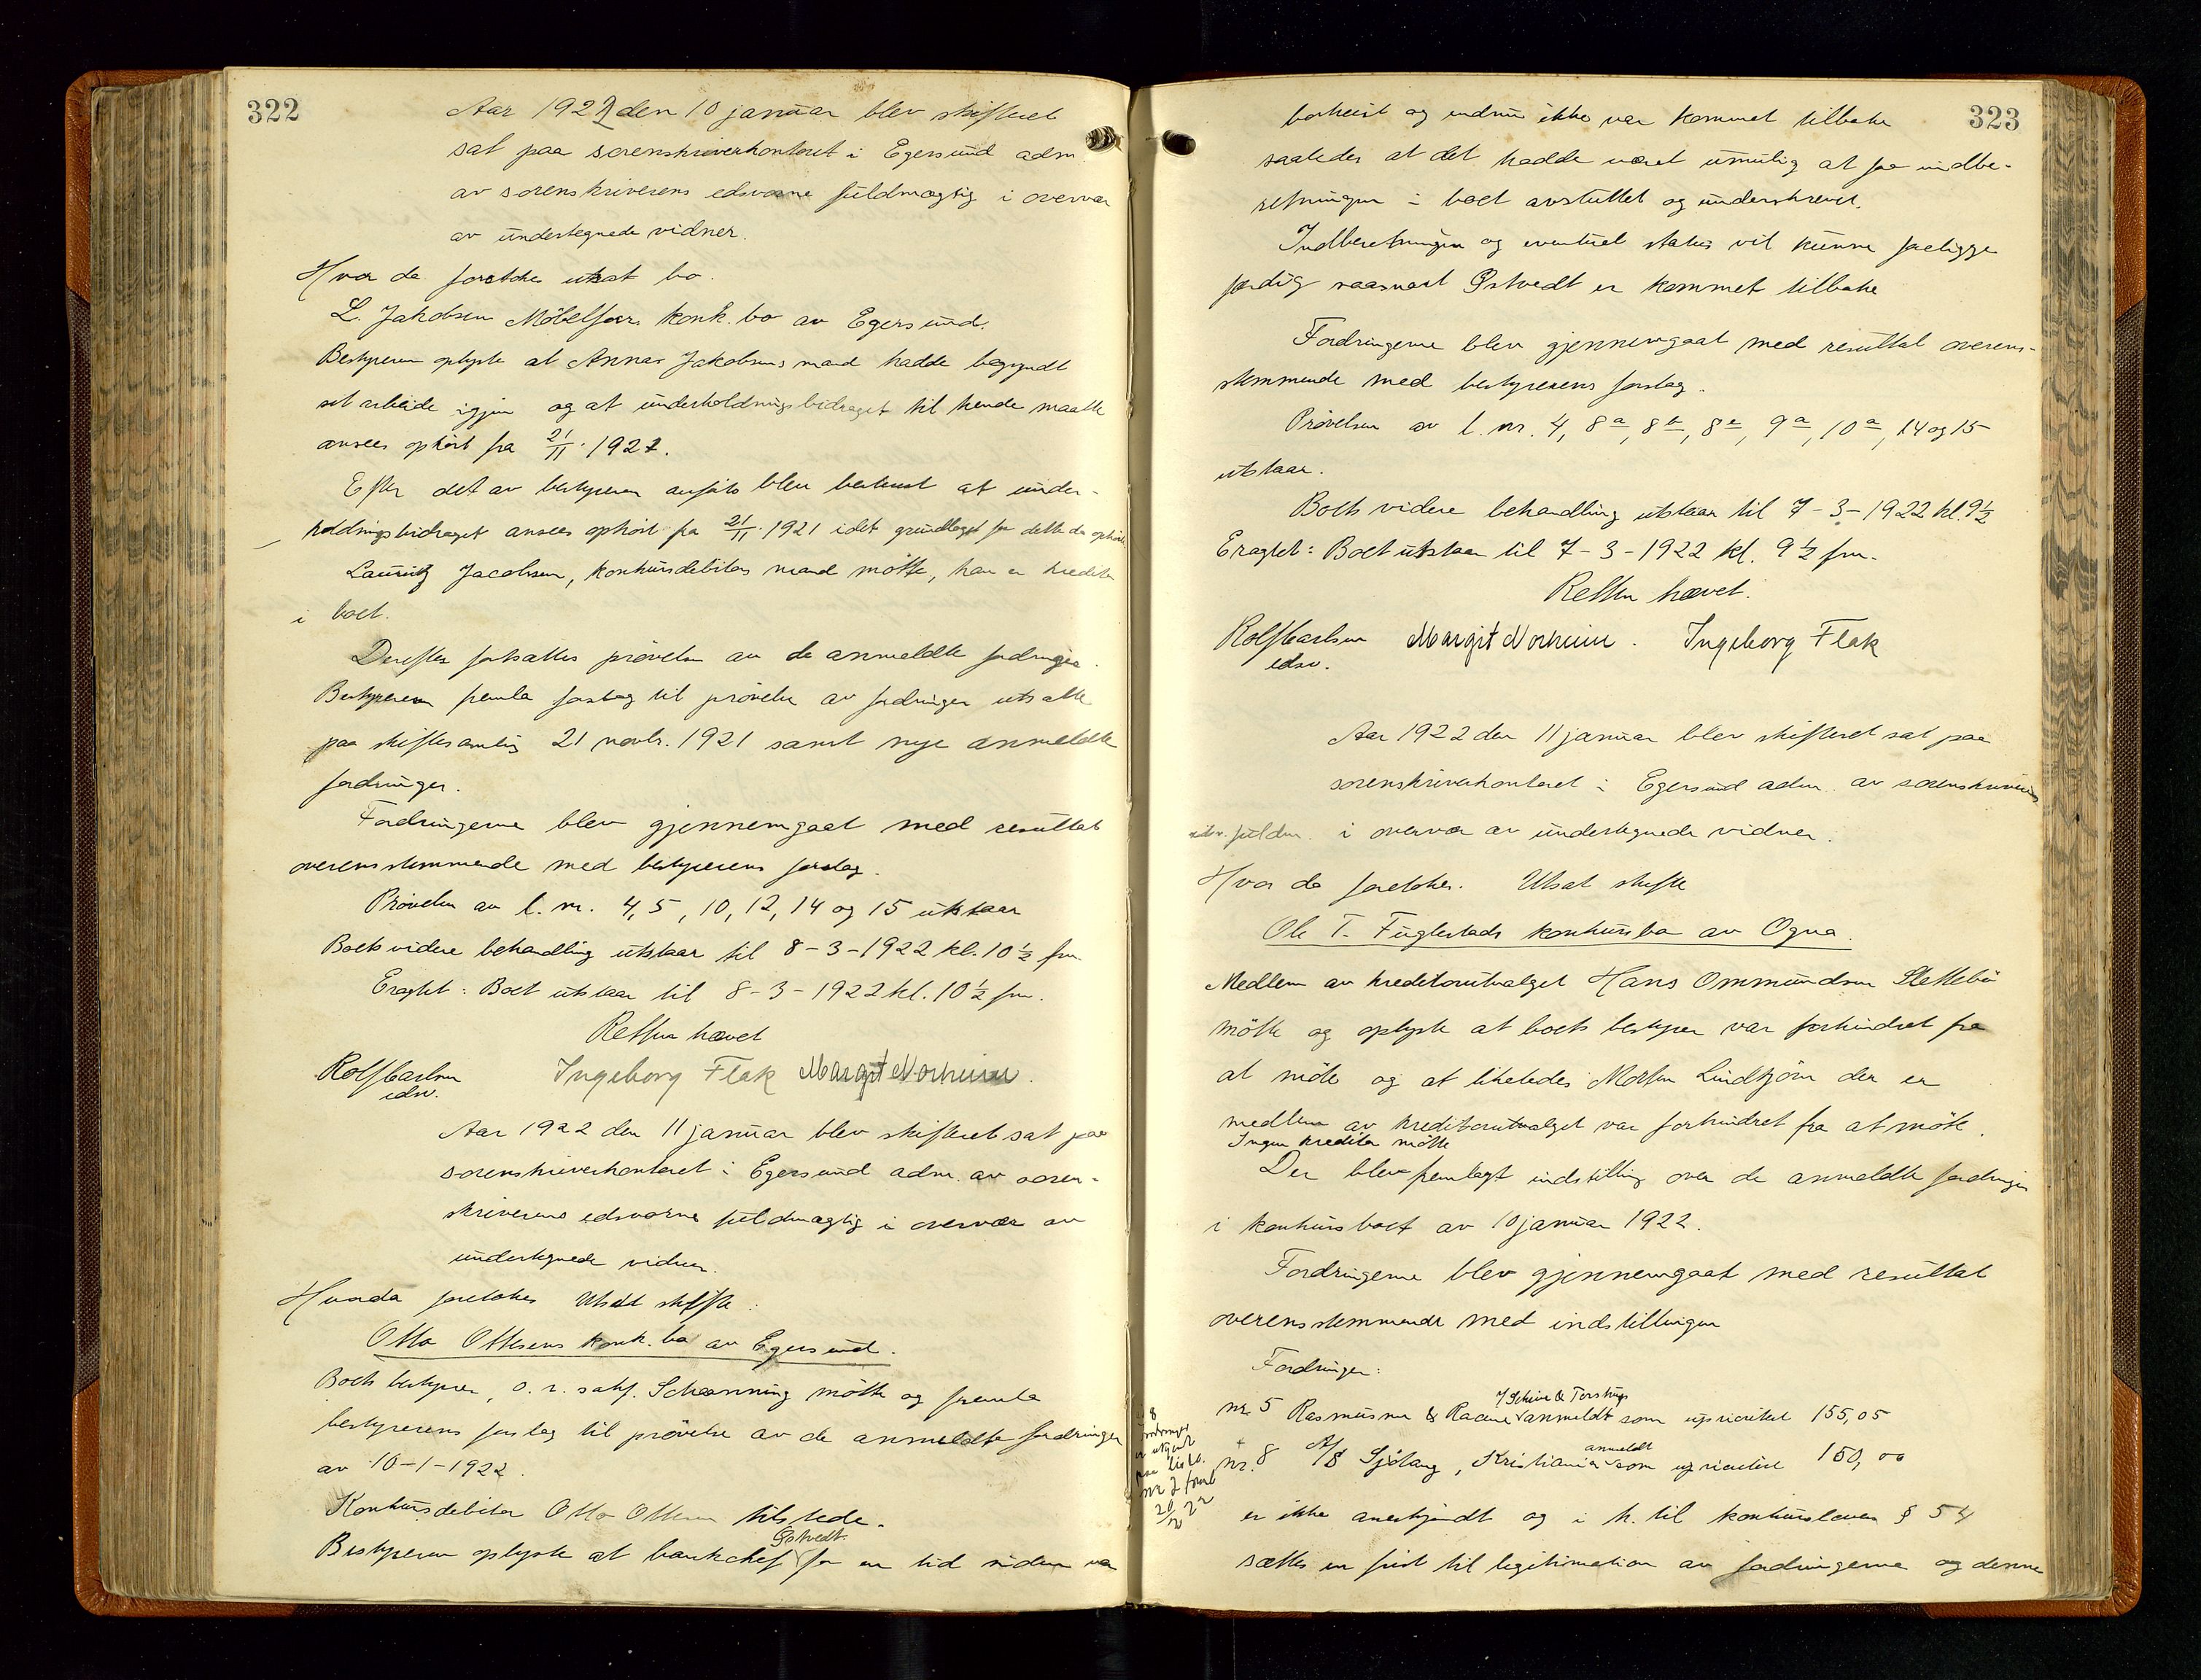 322
Aar 1922 den 10 januar blev skifteret
sat paa sorenskriverkontoret i Egersund adm.
av sorenskriverens edsvorne fuldmægtig i overvær
av undertegnede vidner.
Hvor da foretokes utsat bo.
L. Jakobsen Møbelforr. konk. bo av Egersund.
Bestyreren oplyste at Annas Jakobsens mand hadde begyndt
sit arbeide igjen og at underholdningsbidraget til hende maatte
ansees ophørt fra 21/11. 1921.
Efter det av bestyreren anførte blev bestemt at under-
holdningsbidraget ansees ophørt fra 21/11. 1921 idet grundlaget for dette da ophørte.
Lauritz Jacobsen, konkursdebitors mand møtte, han er kreditor
i boet.
Derefter fortsattes prøvelsen av de anmeldte fordringer.
Bestyreren fremla forslag til prøvelse av fordringer utsatte
paa skiftesamling 21 novbr. 1921 samt nye anmeldte
fordringer.
Fordringerne blev gjennemgaat med resultat
overensstemmende med bestyrerens forslag.
Prøvelsen av l. nr. 4, 5, 10, 12, 14 og 15 utstaar
Boets videre behandling utstaar til 8-3-1922 kl. 10 1/2 fm.
Eragtet: Boet utstaar til 8-3-1922 kl. 10 1/2 fm.
Retten hævet
Rolf Carlsen Ingeborg Flak Margit Norheim.
edsv.
Aar 1922 den 11 januar blev skifteret sat paa
sorenskriverkontoret i Egersund adm. av soren-
skriverens edsvorne fuldmægtig i overvær av
undertegnede vidner.
Hvorda foretokes Utsat skifte:
Otto Ottesens konk. bo av Egersund.
Boets bestyrer, o. r. sakf. Schanning møtte og fremla
bestyrerens forslag til prøvelse av de anmeldte fordringer
av 10-1-1922.
Konkursdebitor Otto Ottesen tilstede.
Østvedt
Bestyreren oplyste at bankchef for en tid siden var
323
bortreist og endnu ikke var kommet tilbake
saaledes at det hadde været umulig at faa indbe-
retningen i boet avsluttet og underskrevet.
Indberetningen og eventuel status vil kunne foreligge
færdig saasnart Østvedt er kommet tilbake
Fordringerne blev gjennemgaat med resultat overens-
stemmende med bestyrerens forslag.
Prøvelsen av l. nr. 4, 8a, 8b, 8c, 9a, 10a, 14 og 15
utstaar.
Boets videre behandling utstaar til 7-3-1922 kl. 9 1/2
Eragtet: Boet utstaar til 7-3-1922 kl. 9 1/2 fm.
Retten hævet.
Rolf Carlsen Margit Norheim. Ingeborg Flak
edsv.
Aar 1922 den 11 januar blev skifteret sat paa
sorenskriverkontoret i Egersund adm. av sorenskriverens
edsv. fuldm. i overvær av undertegnede vidner.
Hvor da foretokes. Utsat skifte
Ole T. Fuglestads konkursbo av Ogna.
Medlem av kreditorutvalget Hans Ommundsen Slettebø
møtte og oplyste at boets bestyrer var forhindret fra
at møte og at likeledes Morten Lindtjørn der er
medlem av kreditorutvalget var forhindret fra at møte.
Ingen kreditor møtte
Der blev fremlagt indstilling over de anmeldte fordringer
i konkursboet av 10 januar 1922.
Fordringerne blev gjennemgaat med resultat
overensstemmende med indstillingen
Fordringer:
nr. 5 Rasmussen & Racine anmeldt som uprioritert 155,05
nr. 8 A/S Sjølang, Kristiania anmeldt som uprioritert 150,00
er ikke anerkjendt og i h. til konkursloven § 54
sættes en frist til legitimation av fordringerne og denne